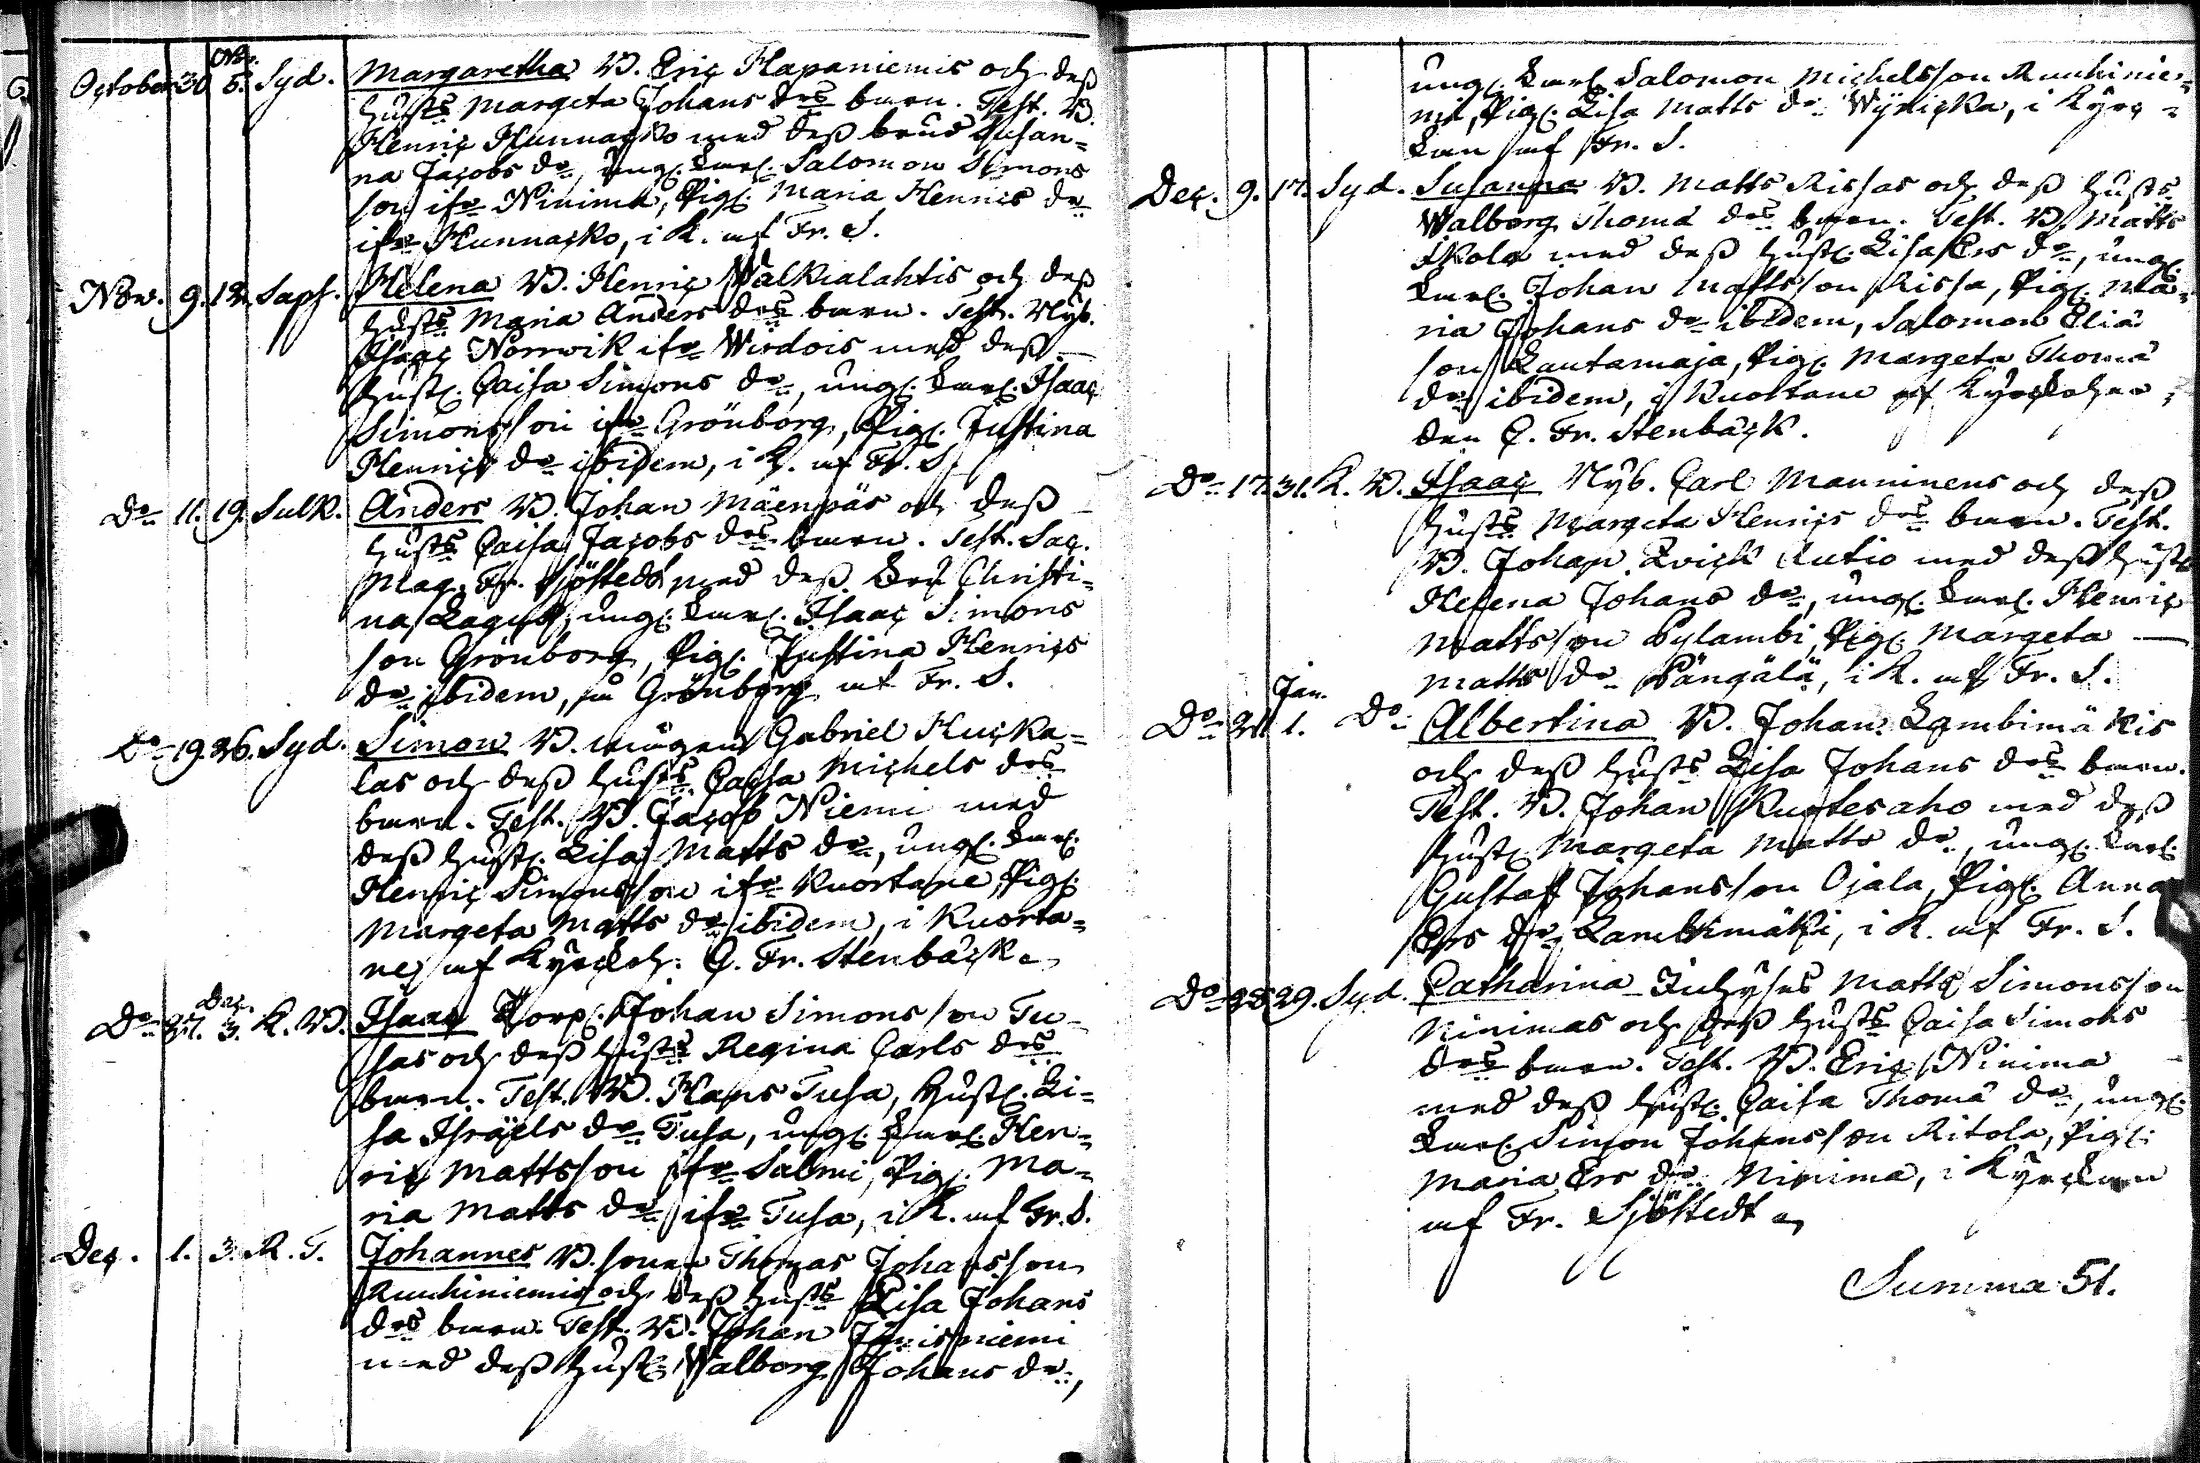 October 30 Nov. 5. Syd. Margaretha B. Eric Hapaniemis och deß
hust:s Margeta Johans d:rs barn. Test. B.
Henric Hunnacko med deß brud Susan=
na Jacobs d:r, ung. karl. Salomon Simons
son ifr: Niinimä, Pig. Maria Henrics d:r
ifr: Hunnacko, i K. af Fr. S.
Nov. 9. 12. Saps. Helena B. Henric Walkialahtis och deß
hust:s Maria Anders d:rs barn. Test. Nyb.
Isaac Norrwik ifr: Wirdois med deß
hust. Caisa Simons d:r, ung. karl. Isaac
Simonsson ifr: Grönborg, Pig. Justina
Henrics d:r ibidem, i K. af Fr. S.
D:o 11. 19. Sulk. Anders B. Johan Mäenpäs och deß
hust:s Caisa Jacobs d:rs barn. Test. Sac.
Mag. Fr. Sjöstedt med deß Fru Christi=
na Lagus, ung. karl. Isaac Simons
son Grönborg, Pig. Justina Henrics
d:r ibidem, på Grönborg af Fr. S.
D:o 19. 26. Syd. Simon B. mågen Gabriel Kucka=
las och deß hust:s Caisa Michels d:rs
barn. Test. B. Jacob Niemi med
deß hust. Lisa Matts d:r, ung. karl.
Henric Simonsson ifr: Kuortane, Pig.
Margeta Matts d:r ibidem, i Kuorta=
ne af Kyrckoh. C. Fr. Stenbäck.
D:o 27. Dec. 3. K. B. Isaac Torp. Johan Simonsson Tu=
sas och deß hust:s Regina Carls d:rs
barn. Test. B. Hans Tusa, hust. Li=
sa Isräels d:r Tusa, ung. karl. Hen=
ric Mattsson ifr: Salmi, Pig. Ma=
ria Matts d:r ifr: Tusa, i K. af Fr. S.
Dec. 1. 3. R. T. Johannes B. sonen Thomas Johansson
Ruuhiniemis och deß hust:s Lisa Johans
d:rs barn. Test. B. Johan Jänisniemi
med deß hust. Walborg Johans d:r,
ung. karl. Salomon Michelsson Ruuhinie=
mi, Pig. Lisa Matts d:r Wÿnicka, i Kyrc=
kan af Fr. S.
Dec. 9. 17. Syd. Susanna B. Matts Rissas och deß hust:s
Walborg Thomä d:rs barn. Test. B. Matts
Ikola med deß hust. Lisa Ers d:r, ung.
karl. Johan Mattsson Rissa, Pig. Ma=
ria Johans d:r ibidem, Salomon Eliä
son Lautamaja, Pig. Margeta Thomä
d:r ibidem, i Kuortane af Kyrckoher=
den C. Fr. Stenbäck.
D:o 17. 31. K. B. Isaac Nyb. Carl Manninens och deß
hust:s Margeta Henrics d:rs barn. Test.
B. Johan Rutio med deß hust:
Helena Johans d:r, ung. karl. Henric
Mattsson Pylambi, Pig. Margeta
Matts d:r Pängälä, i K. af Fr. S.
D:o 21. Jan. 1. D:o Albertina B. Johan Lambimäkis
och deß hust:s Lisa Johans d:rs barn.
Test. B. Johan Kuotesaho med deß
hust. Margeta Matts d:r, ung. karl.
Gustaf Johansson Ojala, Pig. Anna
Ers d:r Lambimäki, i K. af Fr. S.
D:o 28. 29. Syd. Catharina Inhyses Matts Simonsson
Ninimas och deß hust:s Caisa Simons
d:rs barn. Test. B. Eric Ninima
med deß hust. Caisa Thomä d:r, ung.
karl. Simon Johansson Ritola, Pig.
Maria Ers d:r Ninima, i Kyrckan
af Fr. Sjöstedt
Summa 51.